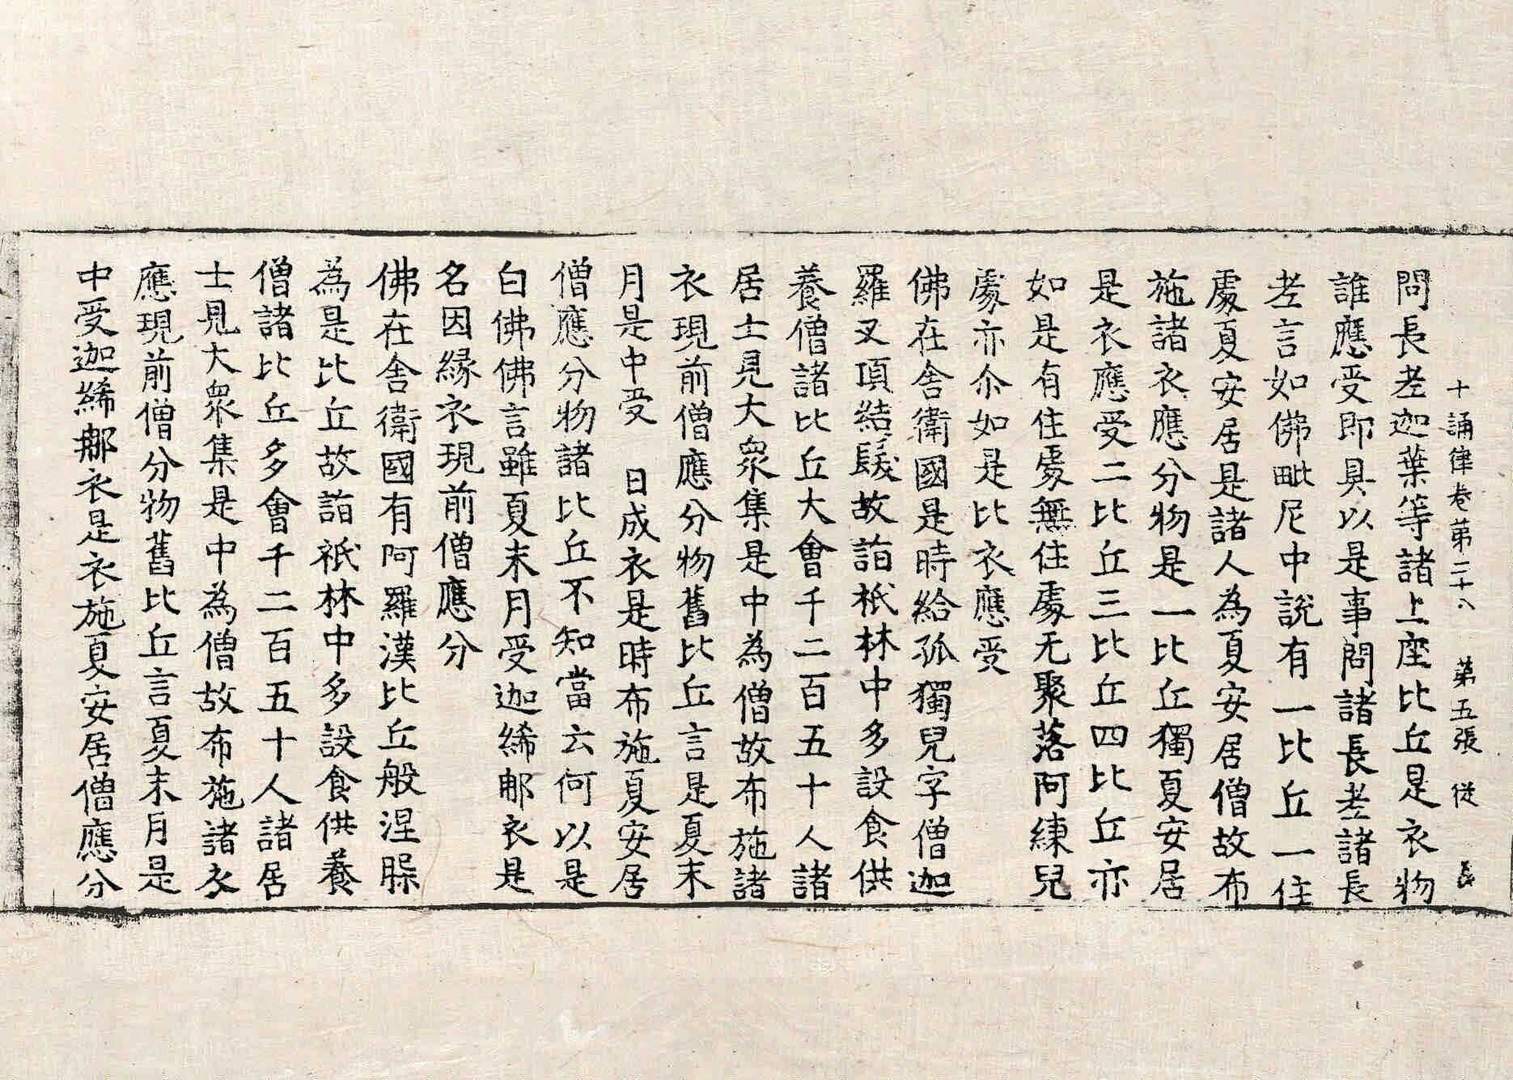 十誦律卷第二十八 第五張 従
問長老迦葉等諸上座比丘是衣物
誰應受即具以是事問諸長老諸長
老言如佛毗尼中說有一比丘一住
處夏安居是諸人為夏安居僧故布
施諸衣應分物是一比丘獨夏安居
是衣應受二比丘三比丘四比丘亦
如是有住處無住處无聚落阿練兒
處亦尒如是比衣應受
佛在舍衛國是時給孤獨兒字僧迦
羅叉項結髮故詣祇林中多設食供
養僧諸比丘大會千二百五十人諸
居士見大衆集是中為僧故布施諸
衣現前僧應分物舊比丘言是夏末
月是中受 日成衣是時布施夏安居
僧應分物諸比丘不知當云何以是
白佛佛言雖夏末月受迦絺那衣是
名因縁衣現前僧應分
佛在舍衛國有阿羅漢比丘般涅槃
為是比丘故詣祇林中多設食供養
僧諸比丘多會千二百五十人諸居
士見大衆集是中為僧故布施諸衣
應現前僧分物舊比丘言夏末月是
中受迦絺那衣是衣施夏安居僧應分